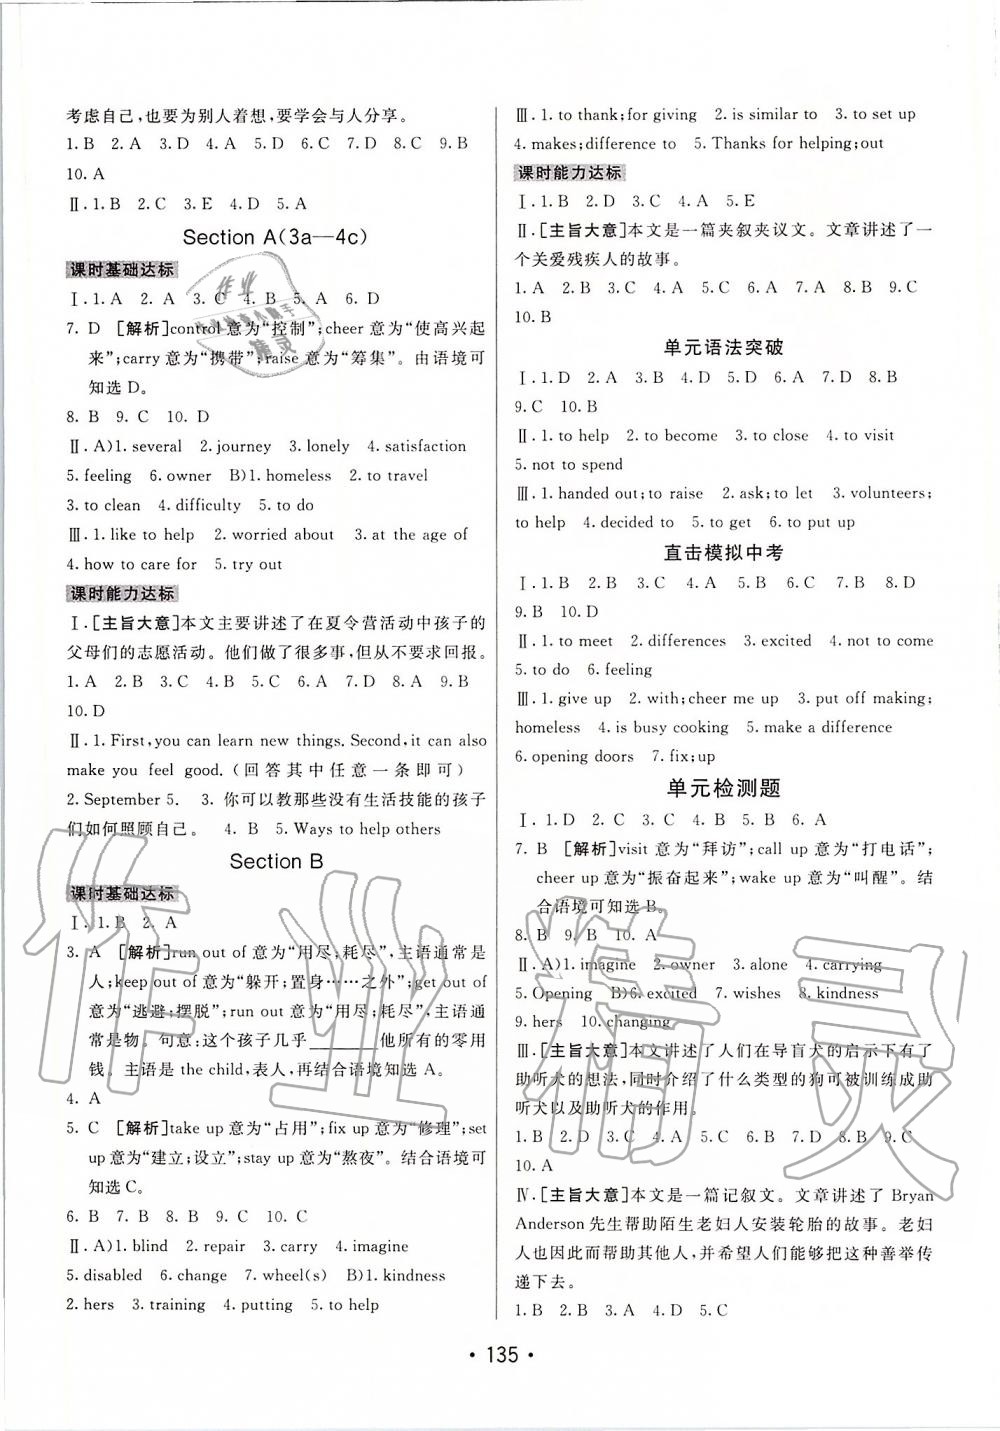 考虑自己,也要为别人着想,要学会与人分享。
1. B 2. A 3. D 4. A 5. D 6. C 7. D 8. C 9. B
10. A
Ⅱ. 1. B 2. C 3. E 4. D 5. A
Section A(3a—4c)
课时基础达标
Ⅰ. 1. A 2. A 3. C 4. B 5. A 6. D
7. D [解析]control意为“控制”;cheer意为“使高兴起
来”;carry意为“携带”;raise意为“筹集”。由语境可
知选 D。
8. B 9. C 10. D
Ⅱ. A)1. several 2. journey 3. lonely 4. satisfaction
5. feeling 6. owner B)1. homeless 2. to travel
3. to clean 4. difficulty 5. to do
Ⅲ. 1. like to help 2. worried about 3. at the age of
4. how to care for 5. try out
课时能力达标
Ⅰ. [主旨大意]本文主要讲述了在夏令营活动中孩子的
父母们的志愿活动。他们做了很多事,但从不要求回报。
1. A 2. B 3. C 4. B 5. C 6. A 7. D 8. A 9. B
10. D
Ⅱ. 1. First, you can learn new things. Second, it can also
make you feel good.(回答其中任意一条即可)
2. September 5. 3. 你可以教那些没有生活技能的孩子
们如何照顾自己。 4. B 5. Ways to help others
Section B
课时基础达标
Ⅰ. 1. B 2. A
3. A [解析]run out of 意为“用尽;耗尽”,主语通常是
人;keep out of 意为“躲开;置身……之外”;get out of
意为“逃避;摆脱”;run out 意为“用尽;耗尽”,主语通
常是物。句意:这个孩子几乎______他所有的零用
钱。主语是 the child,表人,再结合语境知选 A。
4. A
5. C [解析]take up 意为“占用”;fix up 意为“修理”;set
up 意为“建立;设立”;stay up 意为“熬夜”。结合语境可
知选 C。
6. B 7. B 8. B 9. C 10. C
Ⅱ. A)1. blind 2. repair 3. carry 4. imagine
5. disabled 6. change 7. wheel(s) B)1. kindness
2. hers 3. training 4. putting 5. to help
Ⅲ. 1. to thank;for giving 2. is similar to 3. to set up
4. makes;difference to 5. Thanks for helping;out
课时能力达标
Ⅰ. 1. B 2. D 3. C 4. A 5. E
Ⅱ. [主旨大意]本文是一篇夹叙夹议文。文章讲述了一
个关爱残疾人的故事。
1. A 2. B 3. D 4. C 5. A 6. B 7. D 8. C 9. C
10. B
单元语法突破
Ⅰ. 1. D 2. A 3. B 4. D 5. D 6. A 7. D 8. B
9. C 10. B
Ⅱ. 1. to help 2. to become 3. to close 4. to visit
5. not to spend
Ⅲ. 1. handed out;to raise 2. ask;to let 3. volunteers;
to help 4. decided to 5. to get 6. to put up
直击模拟中考
Ⅰ. 1. B 2. B 3. C 4. A 5. B 6. C 7. B 8. D
9. B 10. D
Ⅱ. 1. to meet 2. differences 3. excited 4. not to come
5. to do 6. feeling
Ⅲ. 1. give up 2. with;cheer me up 3. put off making;
homeless 4. is busy cooking 5. make a difference
6. opening doors 7. fix;up
单元检测题
Ⅰ. 1. D 2. C 3. B 4. B 5. B 6. A
7. B [解析]visit 意为“拜访”;call up 意为“打电话”;
cheer up 意为“振奋起来”;wake up 意为“叫醒”。结
合语境可知选 B。
8. B 9. B 10. A
Ⅱ. A)1. imagine 2. owner 3. alone 4. carrying
5. Opening B)6. excited 7. wishes 8. kindness
9. hers 10. changing
Ⅲ. [主旨大意]本文讲述了人们在导盲犬的启示下有了
助听犬的想法,同时介绍了什么类型的狗可被训练成助
听犬以及助听犬的作用。
1. B 2. C 3. D 4. A 5. B 6. D 7. A 8. B 9. C
10. A
Ⅳ. [主旨大意]本文是一篇记叙文。文章讲述了 Bryan
Anderson 先生帮助陌生老妇人安装轮胎的故事。老妇
人也因此而帮助其他人,并希望人们能够把这种善举传
递下去。
1. B 2. B 3. A 4. D 5. C
• 135 •
作业精灵